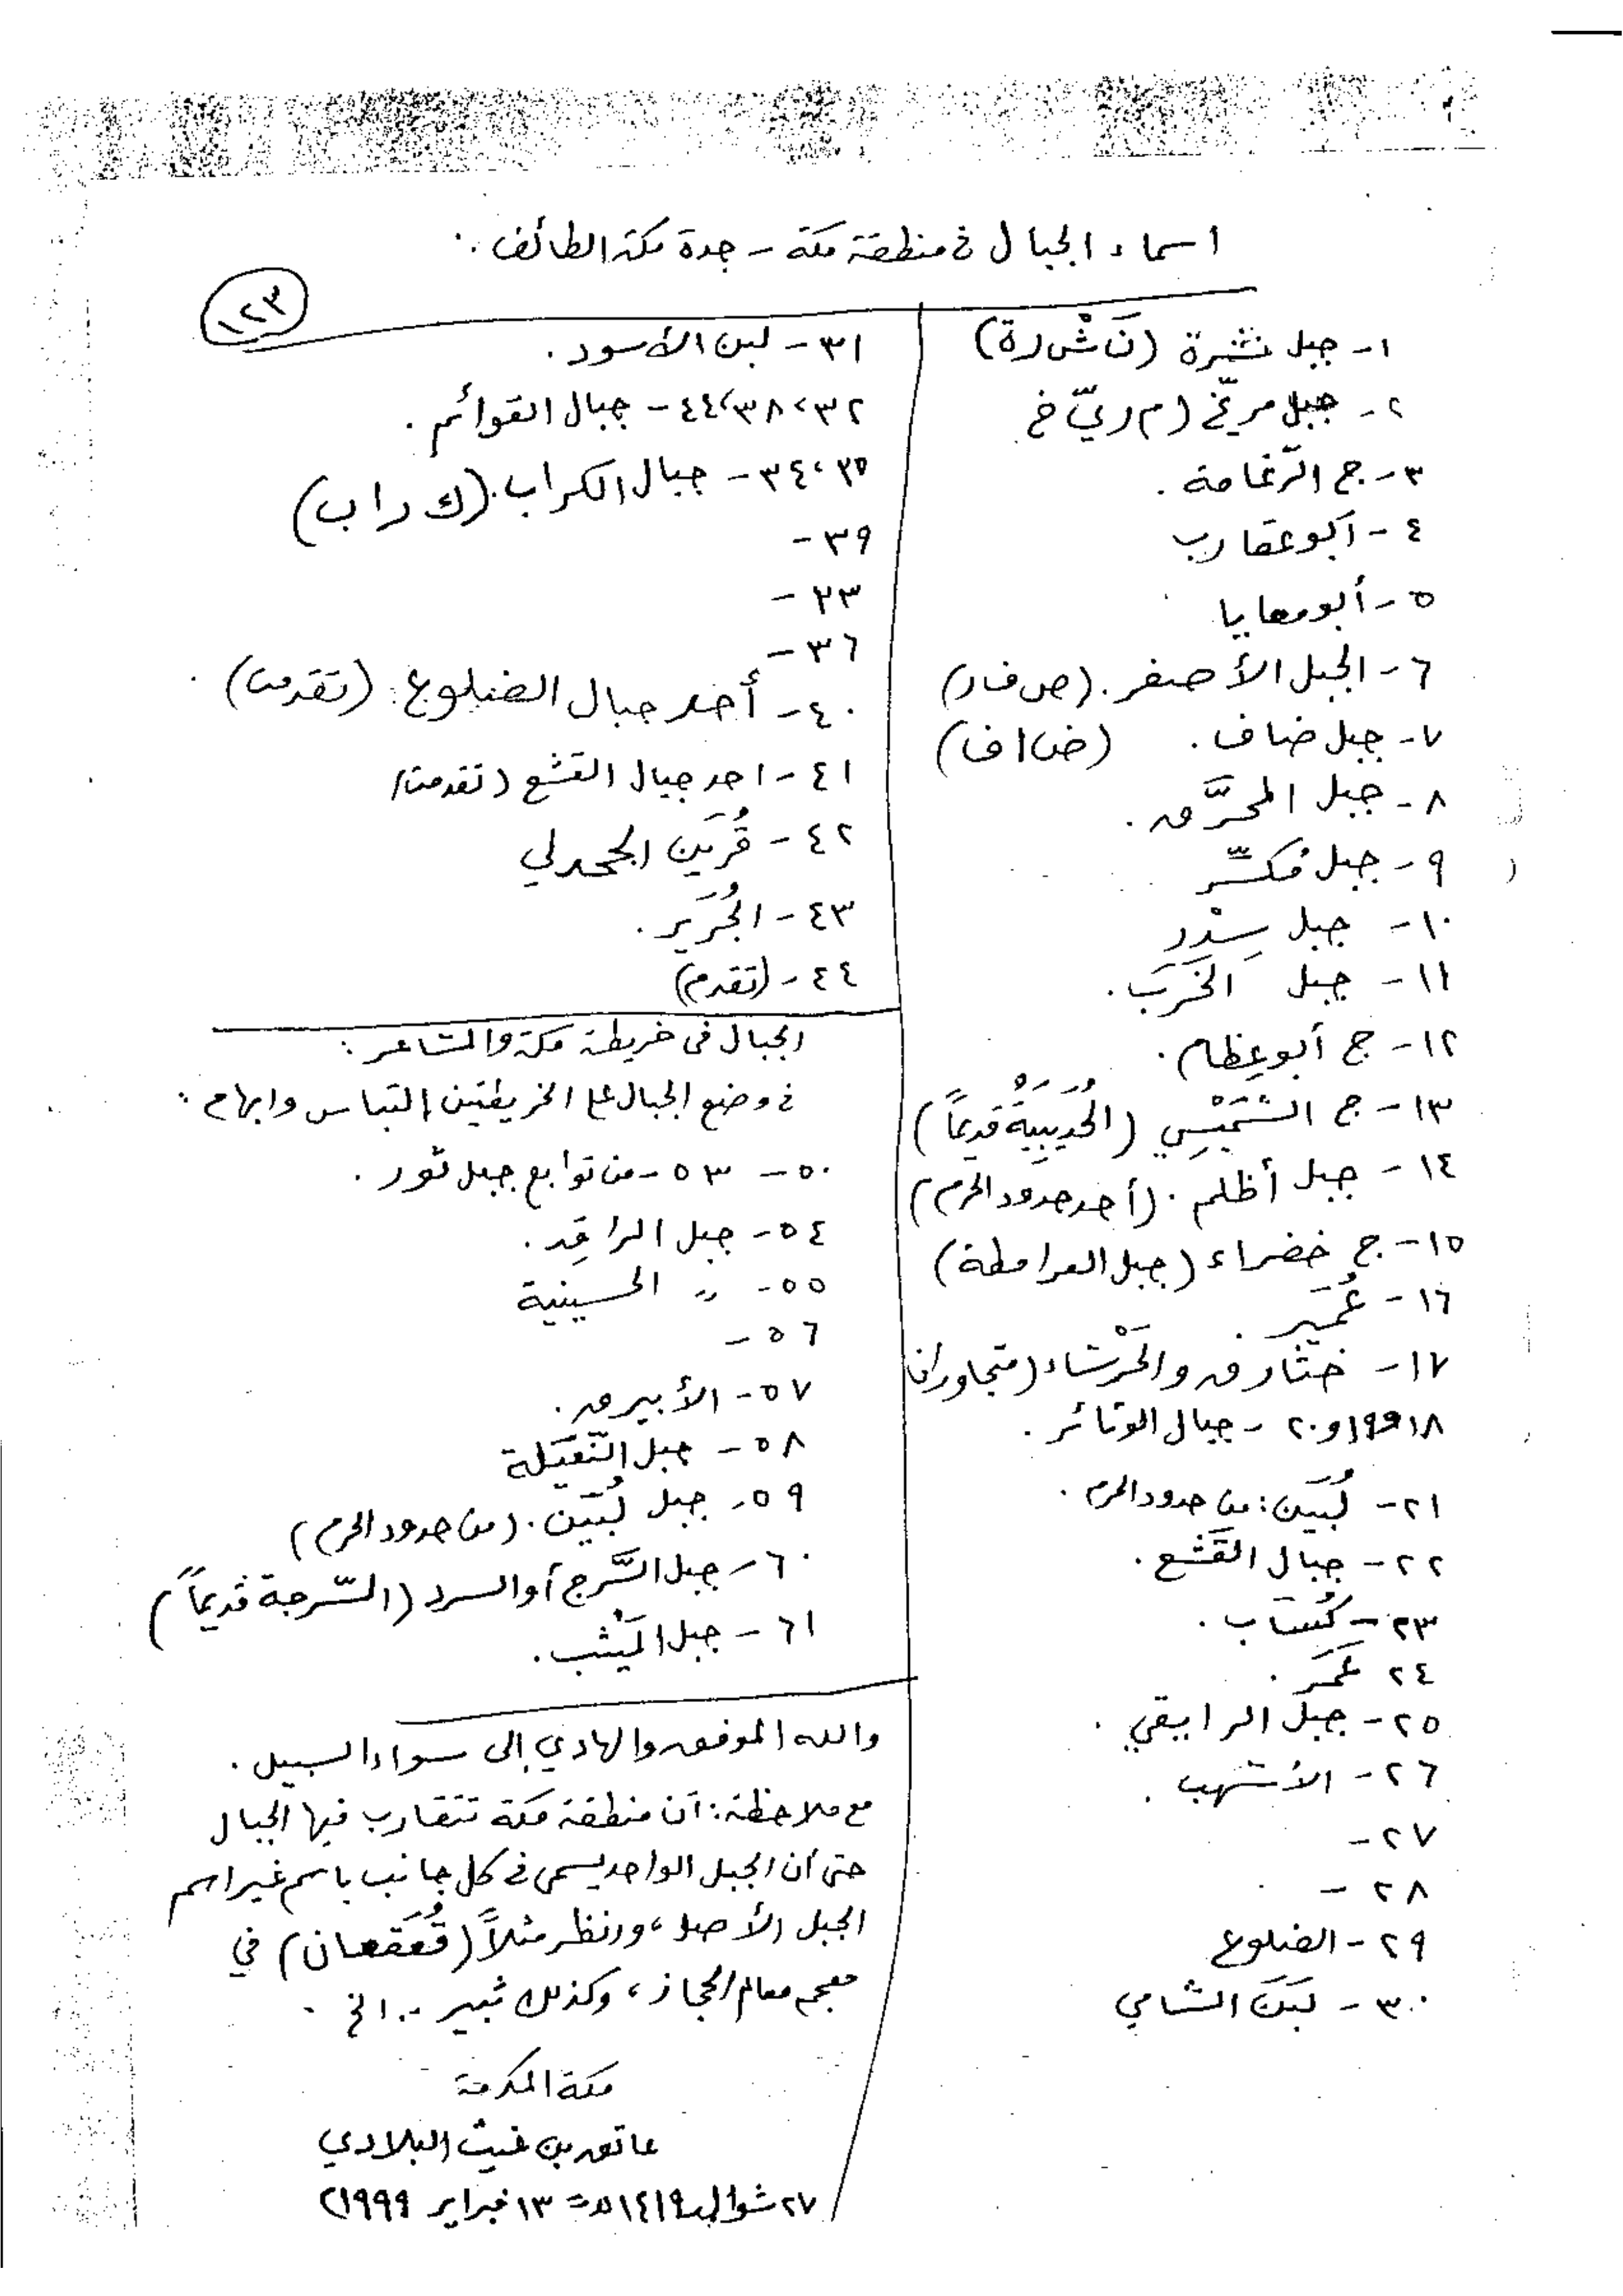 اسماء الجبال في منطقة مكة - جدة مكة الطائف .
١٢٣
١- جبل نثيرة (نَ شْ ر ة)
٢- جبل مريّخ (م ر يّ خ
٣- ج الرّغامة .
٤- أبو عقارب
٥- أبو معايا
٦- الجبل الأصفر . (ص ف ر)
٧- جبل ضاف . (ض ا ف)
٨- جبل المحرَّق .
٩- جبل مُكسِّر
١٠- جبل سِدْر
١١- جبل الخَرَب .
١٢- ج أبو عِظام .
١٣- ج الشُّمَيْسي (الحُدَيْبِيَة قديماً)
١٤- جبل أظلم . (أحد حدود الحرم)
١٥- ج خضراء (جبل العرامطة)
١٦- عُمَير .
١٧- خثارق والخَرْشاء (متجاوران
١٨و١٩و٢٠ - جبال الوتائر .
٢١- لُبَيَن : من حدود الحرم .
٢٢- جبال القَشَع .
٢٣- كُساب .
٢٤ غَمَر .
٢٥- جبل الرابيقي .
٢٦- الأشهب .
٢٧-
٢٨-
٢٩- الضلوع
٣٠- لَبَن الشامي
٣١- لبن الأسود .
٣٢،٣٨،٤٤- جبال القوائم .
٣٤،٣٥- جبال الكراب . (ك ر ا ب)
٣٩-
٣٣-
٣٦-
٤٠- أحد جبال الضلوع . (تقدمت) .
٤١- احد جبال القشع (تقدمت)
٤٢- قُرَين الجحدلي
٤٣- الجُرَير .
٤٤- (تقدم)
الجبال في خريطة مكة والمشاعر :
في وضع الجبال على الخريطتين إلتباس وابهام :
٥٠- ٥٣- من توابع جبل ثور .
٥٤- جبل الراقِد .
٥٥- " الحسينية
٥٦-
٥٧- الأبيرق .
٥٨- جبل النُّقَيلة
٥٩- جبل لُبَيّن . (من حدود الحرم)
٦٠- جبل السَّرج أو السرد (السّرجة قديماً)
٦١- جبل المَيْثب .
والله الموفق والهادي إلى سواء السبيل .
مع ملاحظة : أن منطقة مكة تتقارب فيها الجبال
حتى أن الجبل الواحد يسمى في كل جانب باسم غير اسم
الجبل الأصل ، وانظر مثلاً (قُعَيقعان) في
معجم معالم الحجاز ، وكذلك ثبير .. الخ .
مكة المكرمة
عاتق بن غيث البلادي
٢٧ شوال ١٤١٩هـ = ١٣ فبراير ١٩٩٩م